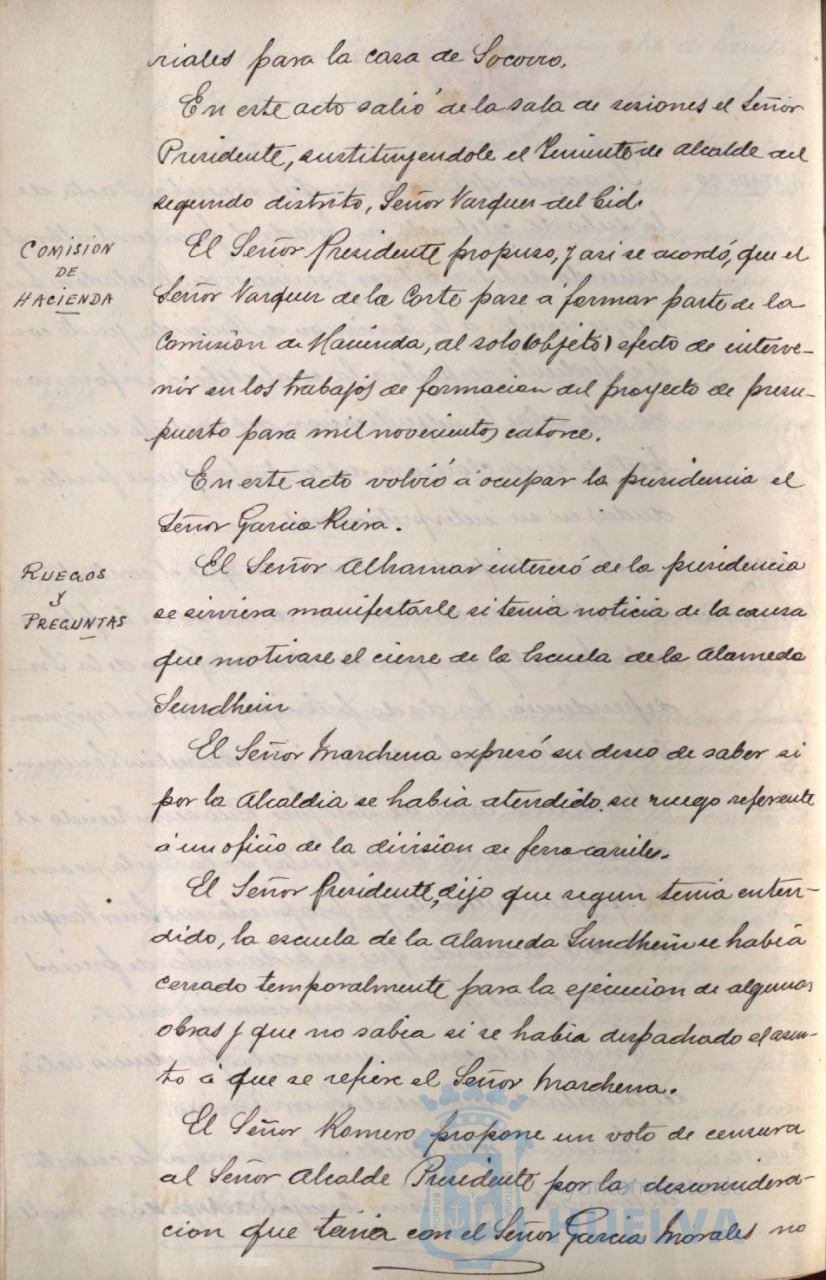 riales para la casa de Socorro.
En este acto salió de la sala de sesiones el Señor
Presidente, sustituyendole el Teniente de Alcalde del
segundo distrito, Señor Vazquez del Cid.
COMISION
DE
HACIENDA
El Señor Presidente propuso, y asi se acordó, que el
Señor Vazquez de la Corte pase á formar parte de la
Comisión de Hacienda, al solo (objeto) efecto de interve-
nir en los trabajos de formacion del proyecto de presu-
puesto para mil novecientos catorce.
En este acto volvió á ocupar la presidencia el
Señor Garcia Riera.
RUEGOS
Y
PREGUNTAS
El Señor Alhamar interesó de la presidencia
se sirviera manifestarle si tenia noticia de la causa
que motivase el cierre de la Escuela de la Alameda
Sundhein
El Señor Marchena expresó su deseo de saber si
por la Alcaldia se habia atendido su ruego referente
á un oficio de la division de ferrocarriles.
El Señor Presidente, dijo que segun tenia enten-
dido, la escuela de la Alameda Sundhein se había
cerrado temporalmente para la ejecucion de algunas
obras y que no sabia si se habia despachado el asun-
to á que se refiere el Señor Marchena.
El Señor Romero propone un voto de censura
al Señor Alcalde Presidente por la desconsidera-
cion que tenia con el Señor Garcia Morales no
HUELVA